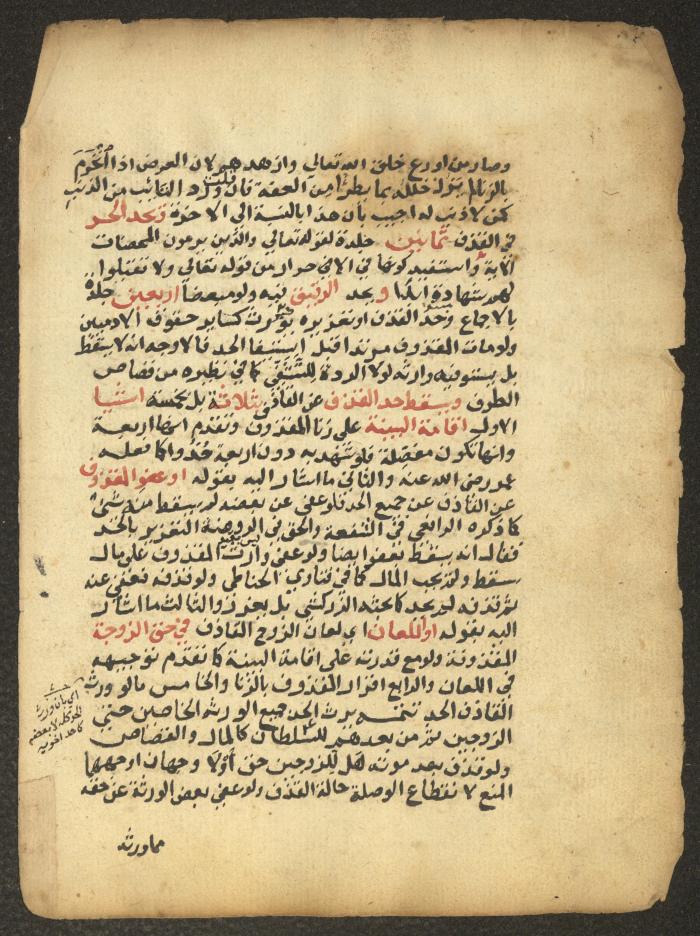 وصار من اورع خلق الله تعالى وازهدهم لان العرض اذا انخرم
بالزنا لم يزل خلله بما يطرا من العفة فان قلت ورد التائب من الذنب
كمن لا ذنب له اجيب بأن هذا بالنسبة الى الاخرة ويحد الحر
في القذف ثمانين جلدة لقوله تعالى والذين يرمون المحصنات
الاية واستفيد كونها في الاحرار من قوله تعالى ولا تقبلوا
لهم شهادة ابدا ويحد الرقيق فيه ولو مبعضا اربعين جلدة
بالاجماع وحد القذف او تعزيره يورث كسائر حقوق الادميين
ولو مات المقذوف مرتدا قبل استيفا الحد فالاوجه انه لا يسقط
بل يستوفيه وارثه لولا الردة للتشفي كما في نظيره من قصاص
الطرف ويسقط حد القذف عن القاذف بثلاثة بل بخمسة اشيا
الاول اقامة البينة على زنا المقذوف وتقدم انها اربعة
وانها تكون مفصلة فلو شهد به دون اربعة حدوا كما فعله
عمر رضي الله عنه والثاني ما اشار اليه بقوله او عفو المقذوف
عن القاذف عن جميع الحد فلو عفي عن بعضه لم يسقط منه شئ
كما ذكره الرافعي في الشفعة والحق في الروضة التعزير بالحد
فقال انه يسقط بعفو ايضا ولو عفي وارث المقذوف على مال
سقط ولم يجب المال كما في فتاوي الحناطي ولو قذفه فعفي عنه
ثم قذفه لم يحد كما بحثه الزركشي بل يعزر والثالث ما اشار
اليه بقوله او اللعان اي لعان الزوج القاذف في حق الزوجة
المقذوفة ولو مع قدرته على اقامة البينة كما تقدم توجيهه
في اللعان والرابع اقرار المقذوف بالزنا والخامس ما لو ورث
القاذف الحد تتمه يرث الحد جميع الورثة الخاصين حتى
الزوجين ثم من بعدهم للسلطان كالمال والقصاص
ولو قذف بعد موته هل للزوجين حق أولا وجهان اوجههما
المنع لانقطاع الوصلة حالة القذف ولو عفي بعض الورثة عن حقه
مما ورثه